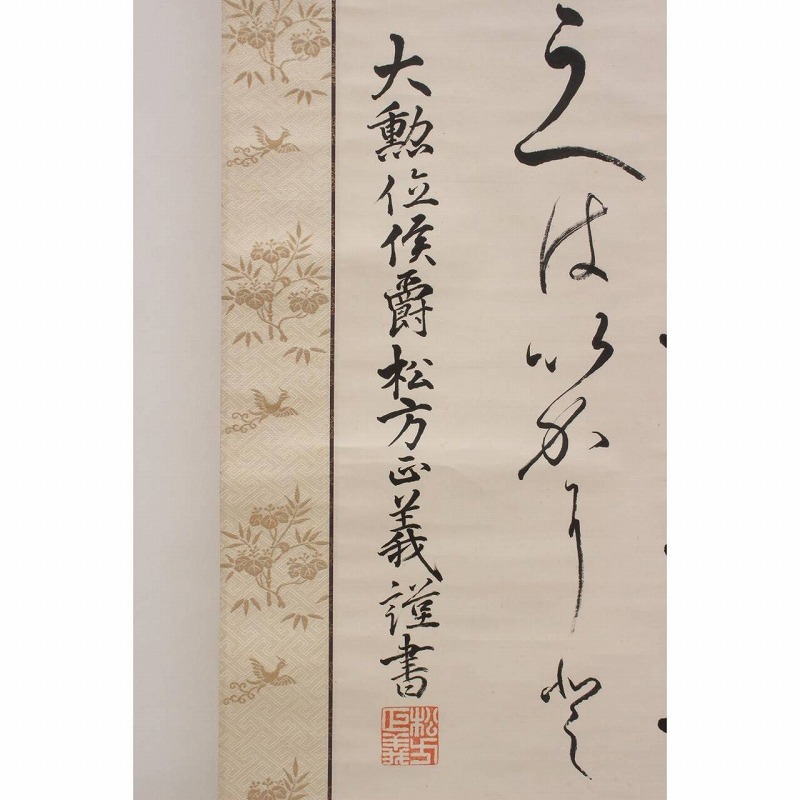 うへはいかに登
大勲位侯爵松方正義謹書
松方正義